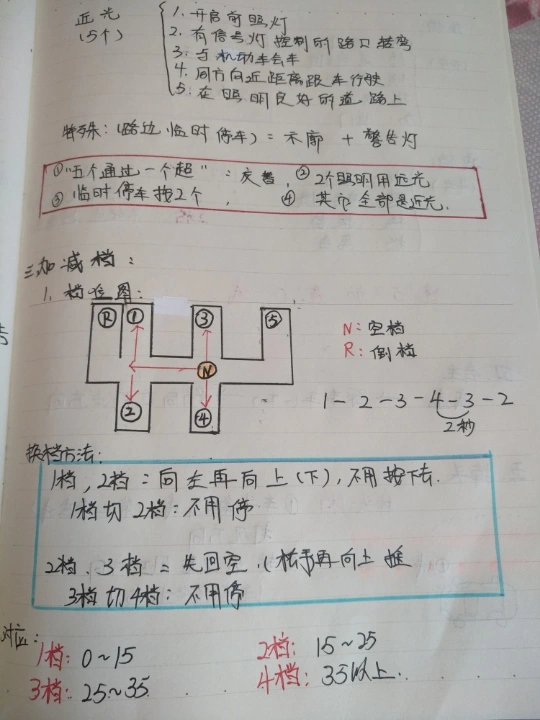 近光
(5个)
1. 开启前照灯
2. 有信号灯控制的路口转弯
3. 与机动车会车
4. 同方向近距离跟车行驶
5. 在照明良好的道路上
特殊:(路边临时停车)= 示廓 + 警告灯
①"五个通过一个超" = 交替, ②2个照明用远光
③临时停车按2个, ④其它全部是近光.
三加减档:
1. 档位图:
R ① ③ ⑤
N
② ④
N: 空档
R: 倒档
1-2-3-4-3-2
2秒
换档方法:
1档, 2档 = 向左再向上(下), 不用按下去.
1档切2档: 不用停
2档、3档 = 先回空 再向上推
3档切4档: 不用停
对应:
1档: 0~15
2档: 15~25
3档: 25~35
4档: 35以上.